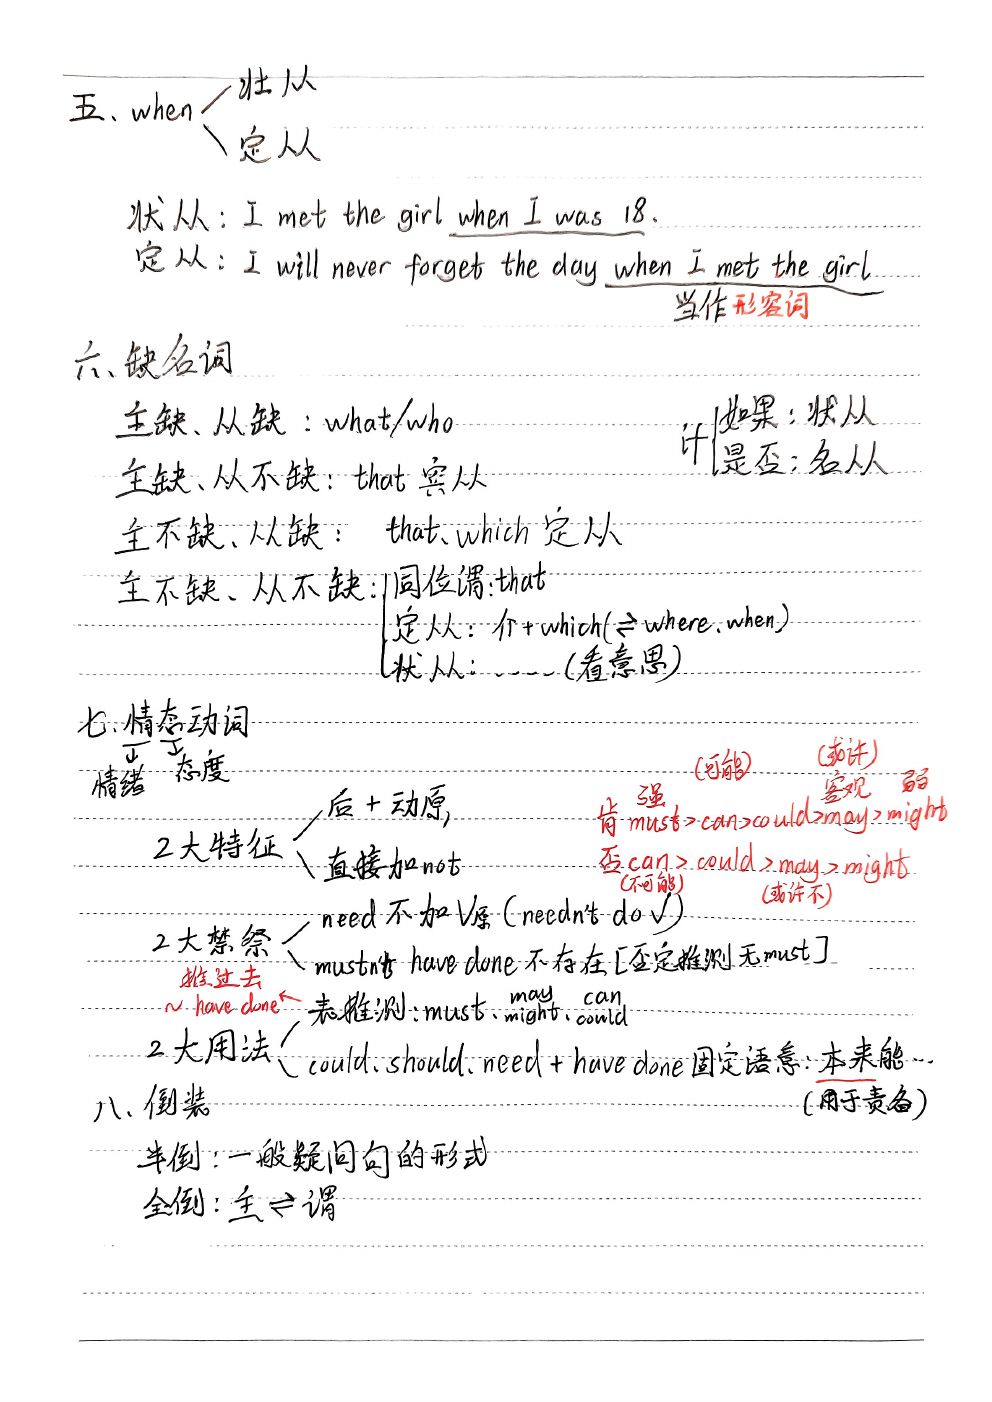 五、when
壮从
定从
状从：I met the girl when I was 18.
定从：I will never forget the day when I met the girl
当作形容词
六、缺名词
主缺、从缺：what/who
主缺、从不缺：that 宾从
主不缺、从缺： that、which 定从
主不缺、从不缺：
同位谓：that
定从：介+which(⇌where、when)
状从：……(看意思)
计
如果：状从
是否：名从
七、情态动词
情绪 态度
2大特征
后+动原,
直接加not
(可能) (或许)
强 客观 弱
肯 must>can>could>may>might
否 can>could>may>might
(不可能) (或许不)
2大禁祭
need 不加V原(needn't do √)
mustn't have done 不存在[否定推测无must]
推过去
~ have done←
2大用法
表推测：must、may might、can could
could、should、need+have done 固定语意：本来能…
(用于责备)
八、倒装
半倒：一般疑问句的形式
全倒：主⇌谓